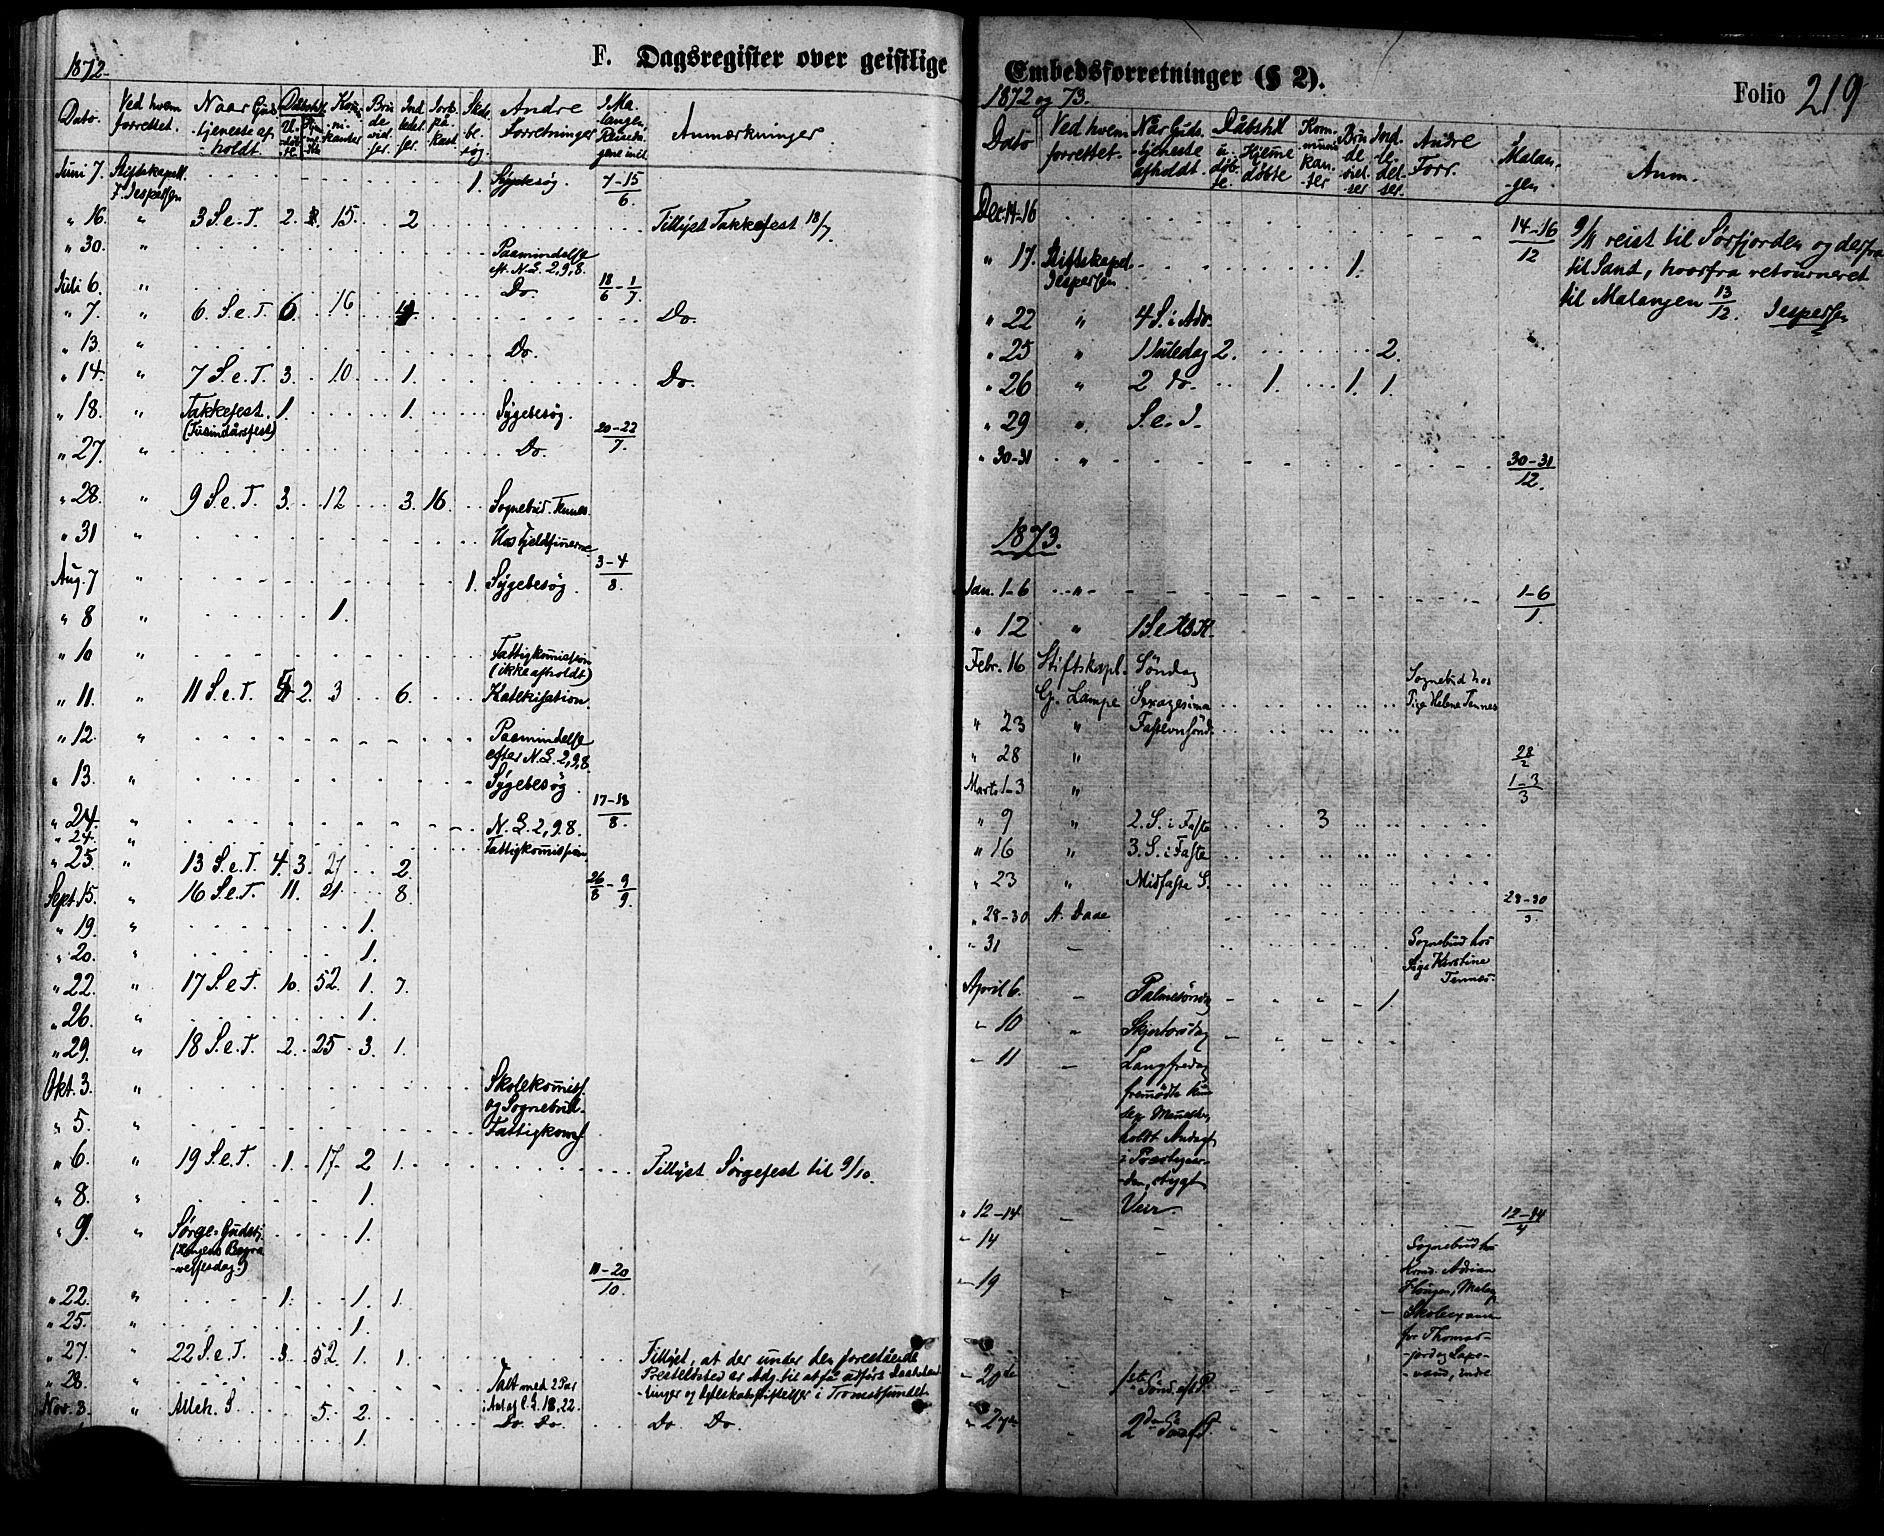 1872.
F. Dagsregister over geistlige
Dato. Ved hvem forrettet. Naar Gudstjeneste afholdt. Andre Forretninger Anmærkninger
Juni 7. Stiftskapell. 1. 7-15/6.
F. Jespersen
" 16. " 3 S. e. T. 2. 15. 2 Tillyst Takkefest 18/7.
" 30. " Paamindelse
eft. N. L. 2, 9, 8.
Juli 6. " Do. 18/6 - 1/7
" 7. " 6. S. e. T. 6. 16 Do.
" 13. " Do.
" 14. " 7 S. e. T. 3. 10. 1. Do.
" 18. " Takkefest. 1. 1. Sygebesøg.
(Tusindårsfest) 20-22/7.
" 27. " Do.
" 28. " 9 S. e. T. 3. 12 3. 16. Sognebud. Tennes.
" 31 " Hos Fjeldfinnerne
3-4/8.
Aug. 7 " 1. Sygebesøg.
" 8 " 1.
" 10 " Fattigkommission
(ikke afholdt)
" 11. " 11 S. e. T. 2. 3 6. Katekisation.
" 12. " Paamindelse
efter N. L. 2, 9, 8.
" 13. " Sygebesøg.
17-18/8.
" 24. " N. L. 2, 9. 8.
" 24. " Fattigkommission
" 25. " 13 S. e. T. 4. 3. 27 2.
Sept. 15. " 16 S. e. T. 11. 21 8. 26/8 - 9/9.
" 19. " 1.
" 20. " 1.
" 22. " 17 S. e. T. 10. 52. 1. 7.
" 26. " 1.
" 29. " 18 S. e. T. 2. 25 3. 1.
Okt. 3. " Skolekommiss.
og Sognebud.
" 5. " Fattigkomm.
" 6. " 19 S. e. T. 1. 17. 2 1. Tillyst Sørgefest til 9/10.
" 8. " 1.
" 9. " Sørge-Gudstj. 1.
(Kongens Begra-
velsesdag.)
11-20/10.
" 22. " 1. 1. 1.
" 25. " 1.
" 27. " 22 S. e. T. 3. 52. 1. 1. Tillyst, at der under den forestående
" 28. Talt med 2 Par
Nov. 3. " Alleh. S 5. 2. Do. Do. Do Do.
1.
Embedsforretninger (§ 2).
Folio 219
1872 og 73.
Dato Ved hvem forrettet. Når Gudstjeneste afholdt. Dåbshdl. Hjemmedøbte Andre Forr. Malangen Anm.
Dec. 14-16 14-16/12 reist til Sørfjorden og derfra
" 17. Stiftskapel. 1. til Sand, hvorfra retourneret
Jespersen til Malangen 13/12. Jespersen
" 22 " 4 S. i Adv.
" 25 " 1 Juledag 2. 2.
" 26 " 2 do. 1. 1. 1.
" 29 "
" 30-31 " 30-31/12.
1873.
Jan. 1-6 " 1-6/1.
" 12 "
Febr. 16 Stiftskapl. Søndag Sognebud hos
G. Lampe Sexagesima Pige Helene Tennes
" 23 "
" 28 " 28/2
Marts 1-3 " 1-3/3
" 9 " 2. S. i Faste 3
" 16 " 3. S. i Faste
" 23 " Midfaste S.
" 28-30 A. Daae 28-30/3.
" 31 Sognebud hos
Pige Kirstine
Tennes.
April 6. Palmesøndag 1
" 10 " Skjærtorsdag
" 11 Langfredag
fremmødte kun
holdt Andagt
i Præstegaar-
den, stygt
Veir.
" 12-14 12-14/4
" 14 Sognebud hos
" 19 Adrian
Skoleexamen
for Thomas-
-jord og
" 20de
" 27de